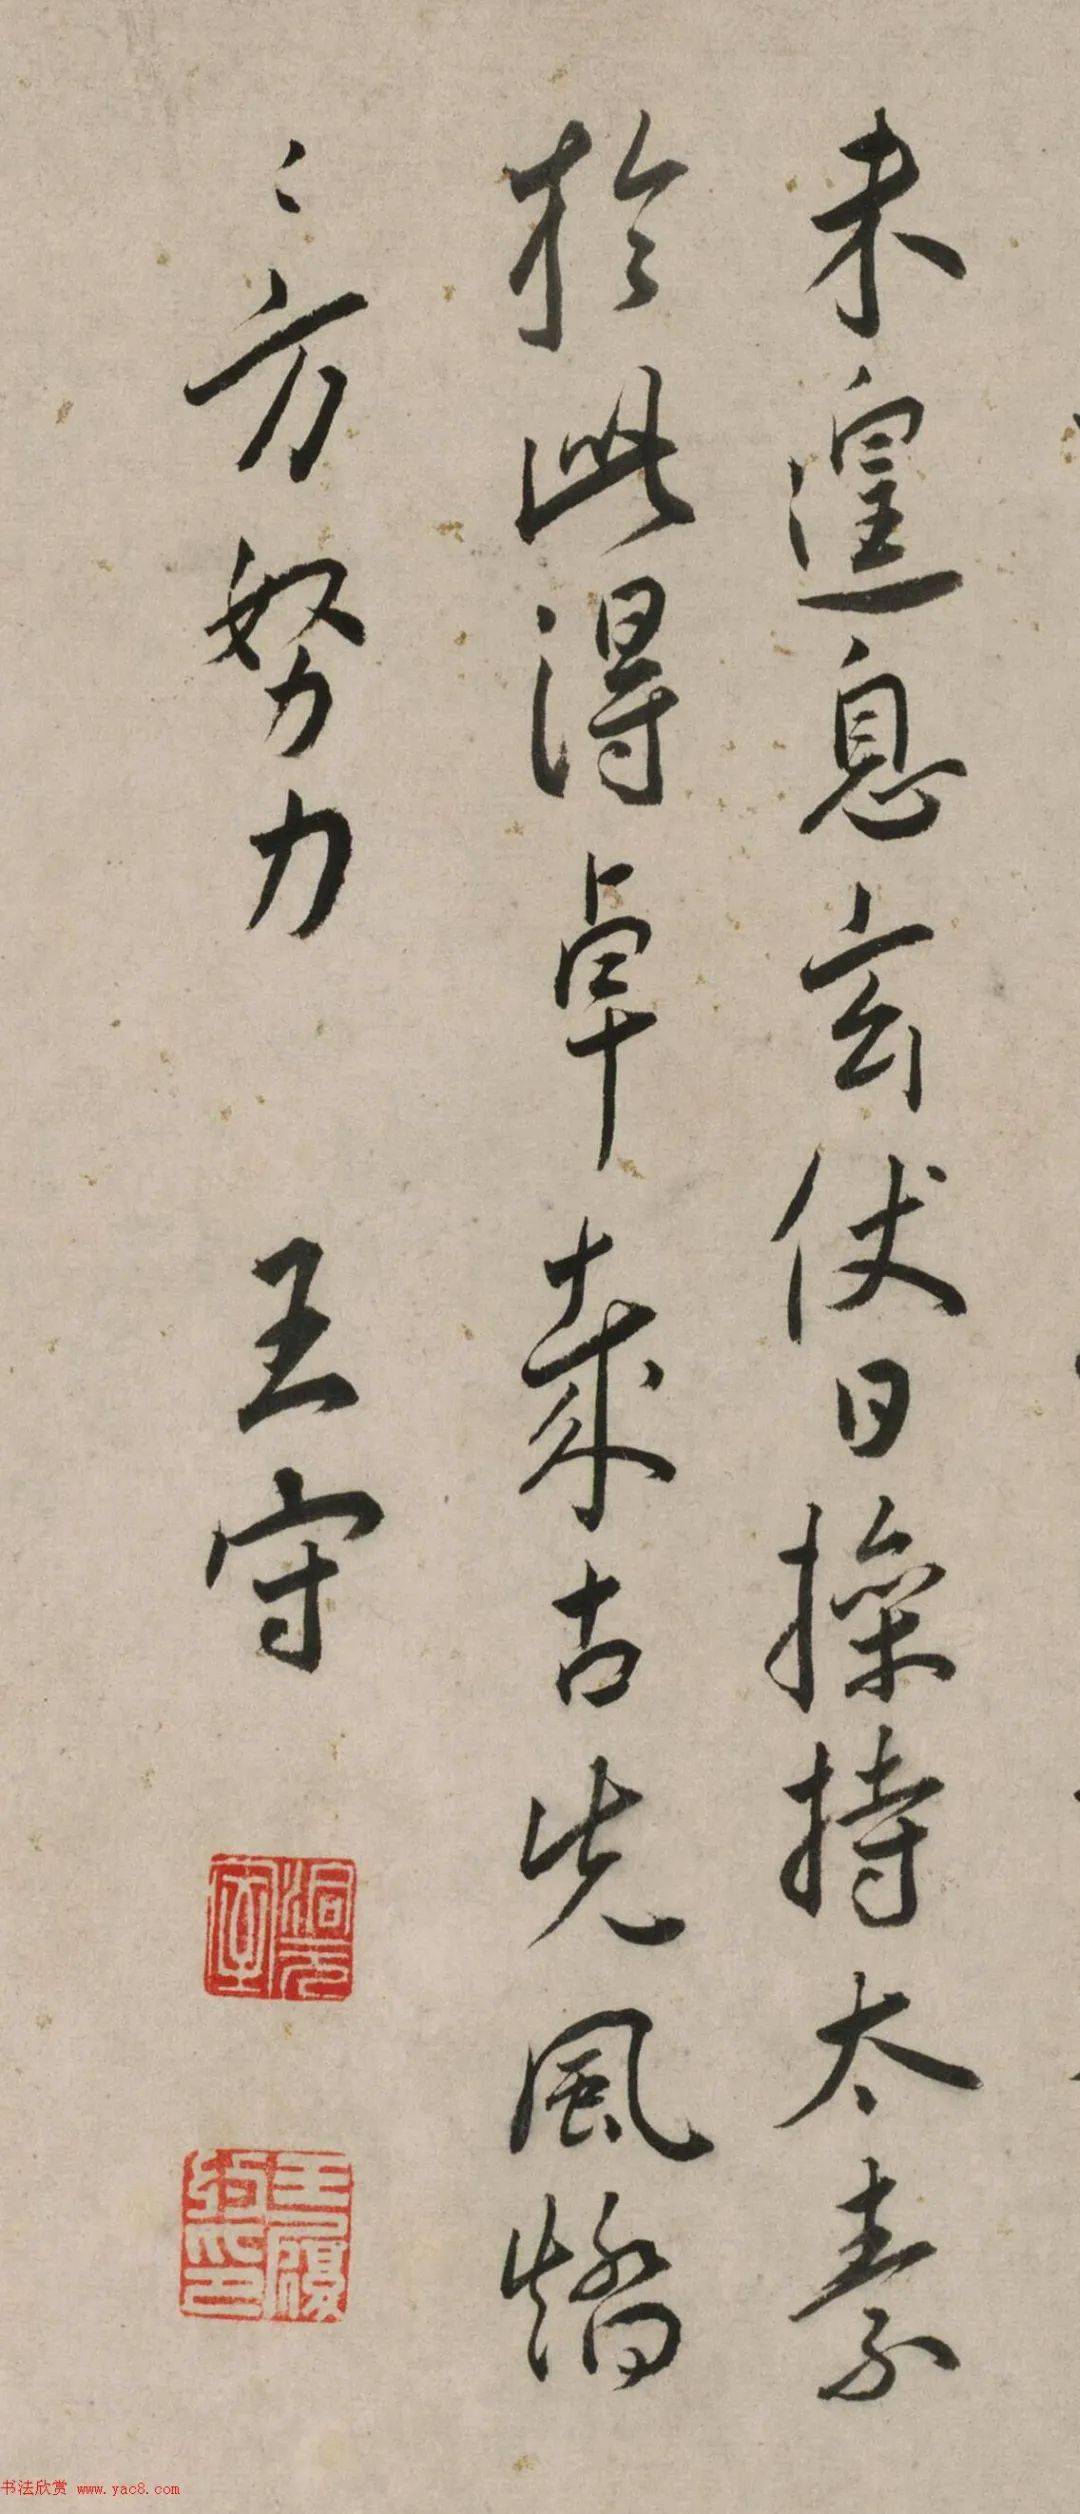 未遑息玄仗日操持太素
於此得卓哉古先風
〻方努力　王守
王履約印
书法欣赏 www.yac8.com